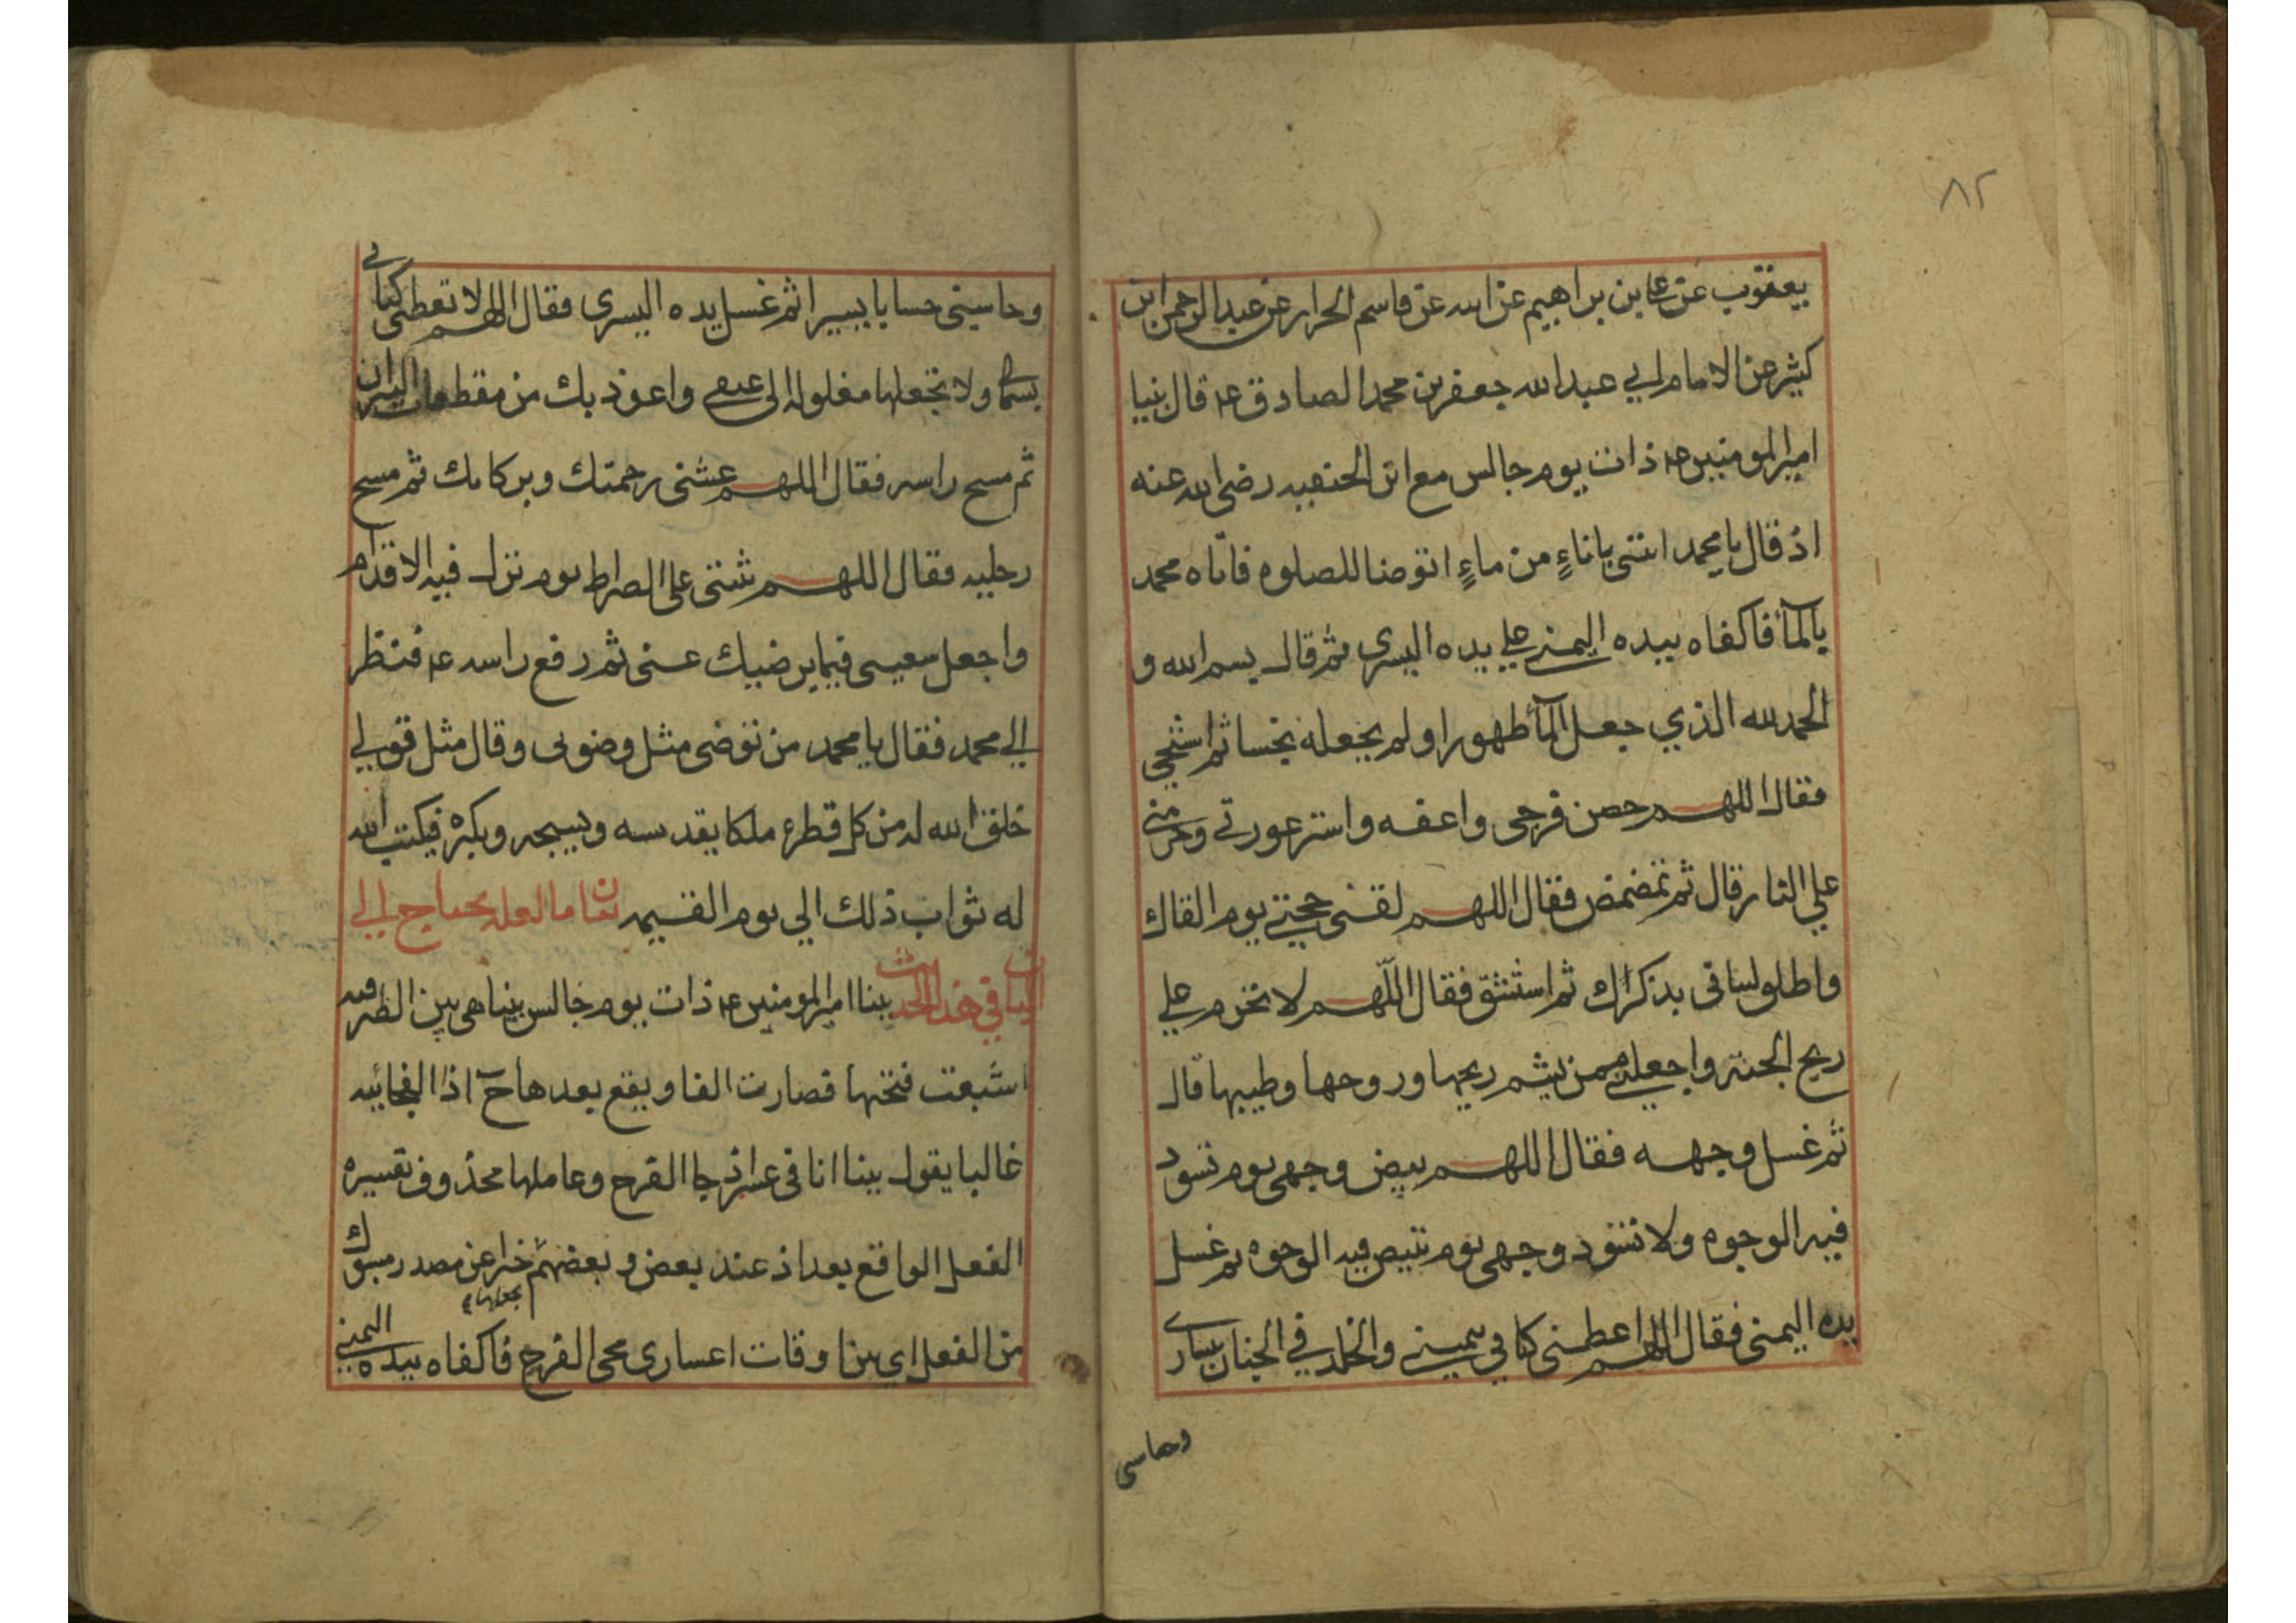 ٨٢
يعقوب عن علي بن براهيم عن ابيه عن قاسم الخرار عن عبد الرحمن ابن
كثير عن الامام ابي عبد الله جعفر بن محمد الصادق ع قال بينا
امير المومنين ع ذات يوم جالس مع ابن الحنفيه رضي الله عنه
اذ قال يا محمد ائتنى باناءٍ من ماءٍ اتوضا للصلوة فاتاه محمد
بالمآء فاكفاه بيده اليمنى علي يده اليسرى ثم قال بسم الله و
الحمد لله الذي جعل المآء طهورا ولم يجعله نجسا ثم استنجي
فقال اللهم حصن فرجى واعفه واستر عورتي وحرمني
علي النار قال ثم تمضمض فقال اللهم لقنى حجتي يوم القاك
واطلو لسانى بذكراك ثم استنشق فقال اللّهم لا تحرم علي
ريح الجنة واجعلني ممن يشم ريحها وروحها وطيبها قال
ثم غسل وجهه فقال اللهم بيض وجهى يوم تسود
فيه الوجوه ولا تسود وجهى يوم تبيض فيه الوجوه ثم غسل
يده اليمنى فقال اللهم اعطنى كتابي بيميني والخلد في الجنان بيساري
وحاسبى
وحاسبنى حسابا يسيرا ثم غسل يده اليسرى فقال اللهم لا تعطنى كتابي
بشمالي ولا تجعلها مغلولة الى عنقي واعوذ بك من مقطعات النيران
ثم مسح راسه فقال اللهم غشنى رحمتك وبركاتك ثم مسح
رجليه فقال اللهم ثبتنى على الصراط يوم تزل فيه الاقدام
واجعل سعيى فيما يرضيك عنى ثم رفع راسه ع فنظر
الي محمد فقال يا محمد من توضى مثل وضوبى وقال مثل قولي
خلق الله له من كل قطرة ملكا يقدسه ويسبحه ويكبره فيكتب الله
له ثواب ذلك الي يوم القيمه بيان ما لعله يحتاج الي
البيان في هذا الحديث بينا امير المومنين ع ذات يوم جالس بينا هى بين الظرفيه
اشبعت فتحتها فصارت الفا ويقع بعدها ح اذا الفجائيه
غالبا يقول بينا انا في عسر اذ جا الفرح وعاملها محذوف تفسيره
الفعل الواقع بعد اذ عند بعض و بعضهم خبرا عن مصدر مسبوك
يجعلها
من الفعل اي بين اوقات اعسارى مجى الفرح فاكفاه بيده اليمنى